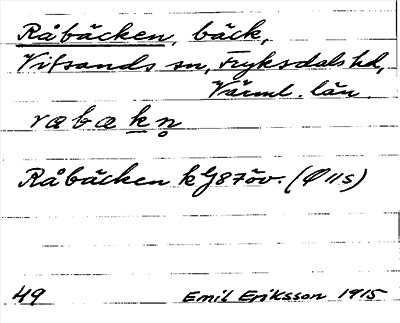 Råbäcken, bäck,
Vitsands sn, Fryksdals hd,
Värml. län
rabakn̥
Råbäcken kG87öv. (Ö11s)
49 Emil Eriksson 1915